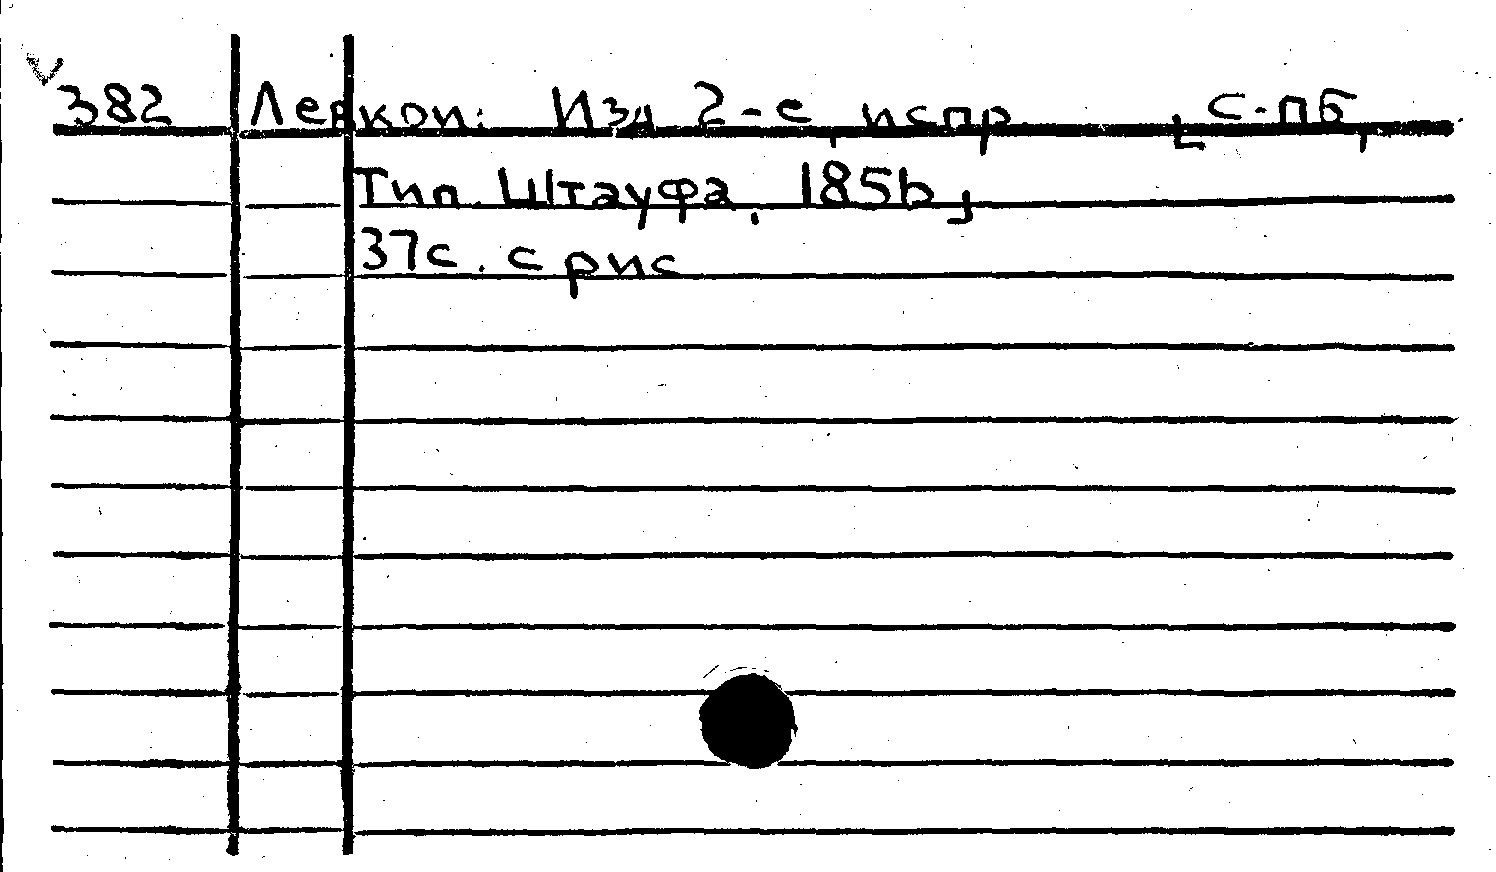 382 Леркои: Изд 2-е, испр. [С-пб,
Тип. Штауфа, 185b]
37с. с рис